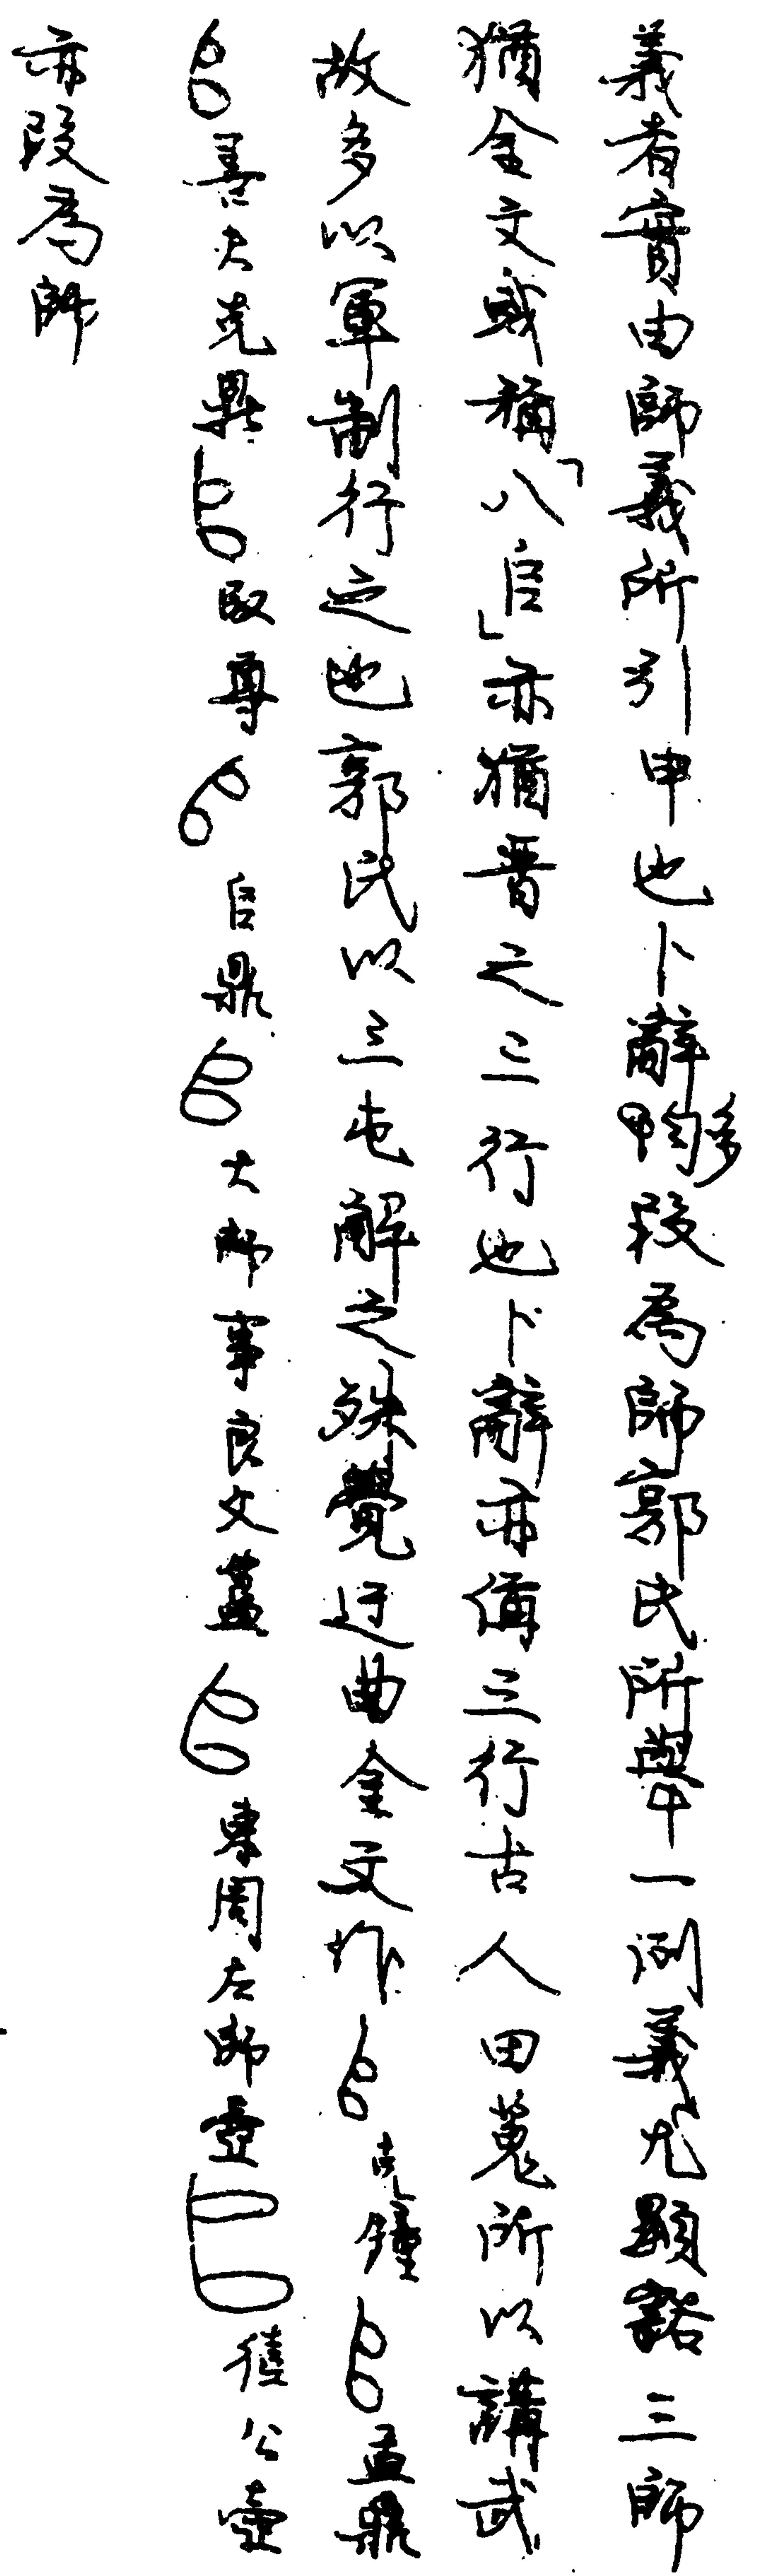 義者實由師義所引申也卜辭𠂤均多叚為師郭氏所舉一例義尤顯豁三師
猶金文或稱「八𠂤」亦猶晉之三行也卜辭亦偁三行古人田蒐所以講武
故多以軍制行之也郭氏以三屯解之殊覺迂曲金文作𠂤克鐘𠂤盂鼎
𠂤善夫克鼎𠂤取尊𠂤𠂤鼎𠂤大師事良父簋𠂤東周左師壺𠂤公壺
亦叚為師